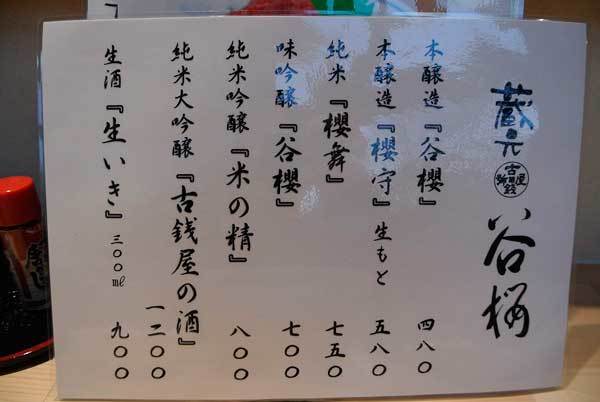 蔵元 谷櫻
本醸造『谷櫻』 四八〇
本醸造『櫻守』生もと 五八〇
純米『櫻舞』 七五〇
味吟醸『谷櫻』 七〇〇
純米吟醸『米の精』 八〇〇
純米大吟醸『古銭屋の酒』 一二〇〇
生酒『生いき』三〇〇㎖ 九〇〇